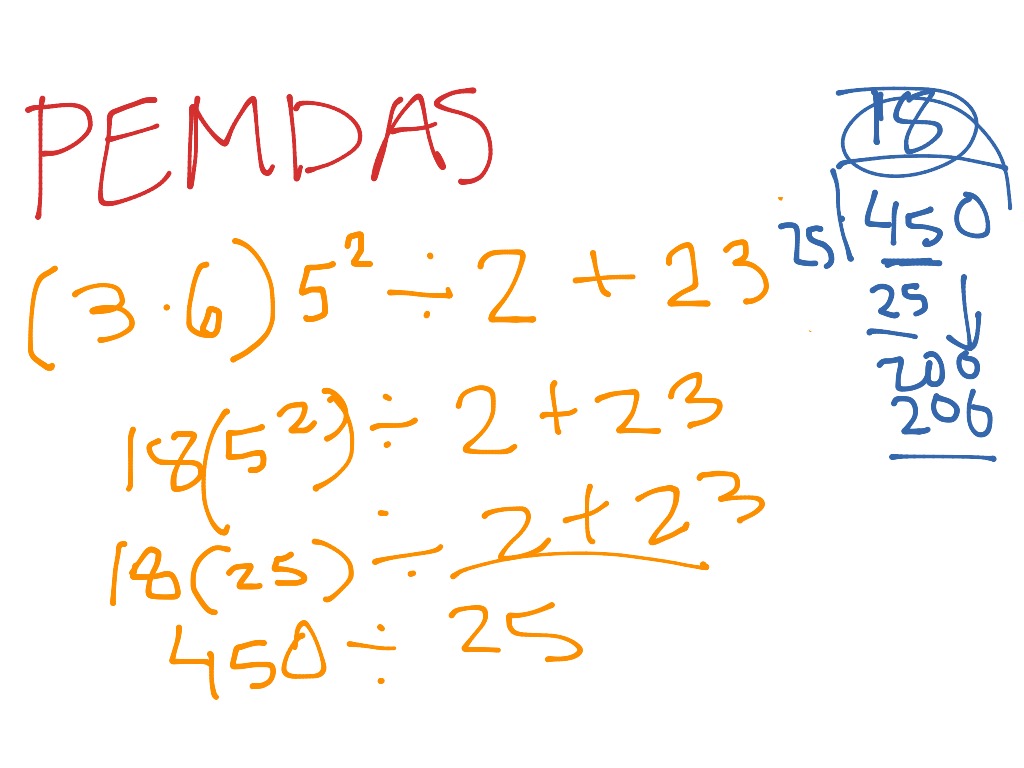 PEMDAS
(3 · 6) 5² ÷ 2 + 23
18(5²) ÷ 2 + 23
18(25) ÷ 2 + 23
450 ÷ 25
18
25 450
25
200
200